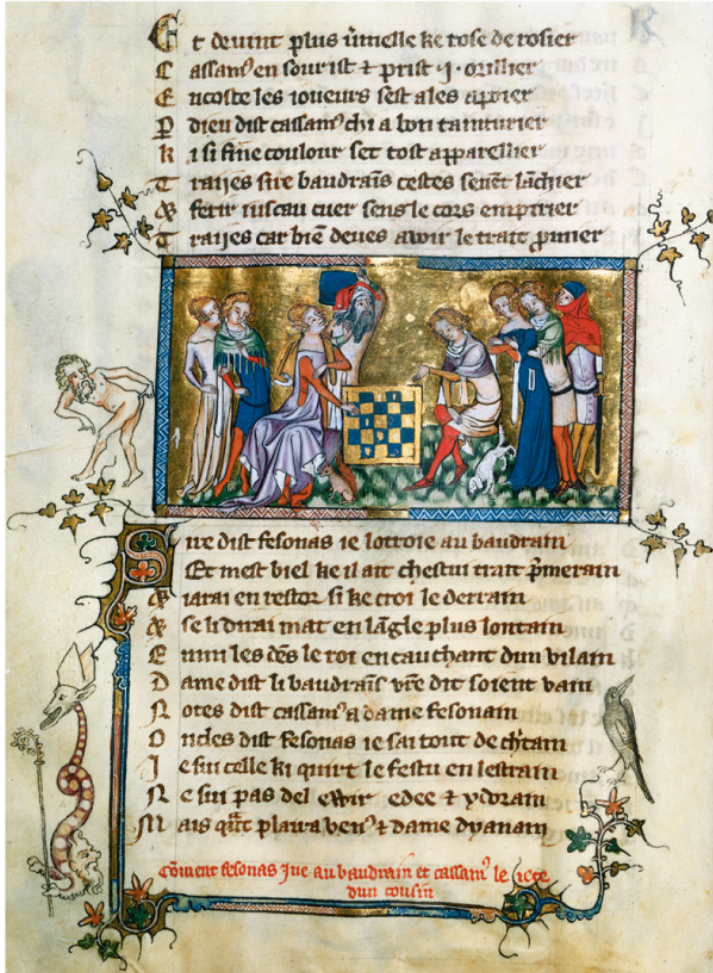 Et deuint plus v̄melle ke rose de rosier
Cassamꝰ en sourist ⁊ prist .j. orillier
Encoste les ioueurs sest ales apoier
P dieu dist cassamꝰ chi a bon tainturier
ki si fine coulour set tost apparellier
Traijes sire baudrais cestes seuent lāchier
ferir iuscau cuer sens le cors empirier
Traijes car biē deues auoir le trait p̄mier
Sire dist fesonas ie lottoie au baudrain
Et mest biel ke il ait chestui trait p̄merain
iarai en restor si ke croi le derrain
se li dirai mat en lāgle plus lontain
Enmi les dēs le roi en cauchant dun vilain
Dame dist li baudrais vr̄e dit soient vain
Notes dist cassamꝰ a dame fesonain
Oncles dist fesonas ie sai tout de
Je sui celle ki quirt le festu en lestrain
Ne sui pas del edee ⁊ ydorain
Mais qāt plaira venꝰ ⁊ dame dyanain
cōment fesonas Jue au baudrain et cassamꝰ le iete
dun cousin